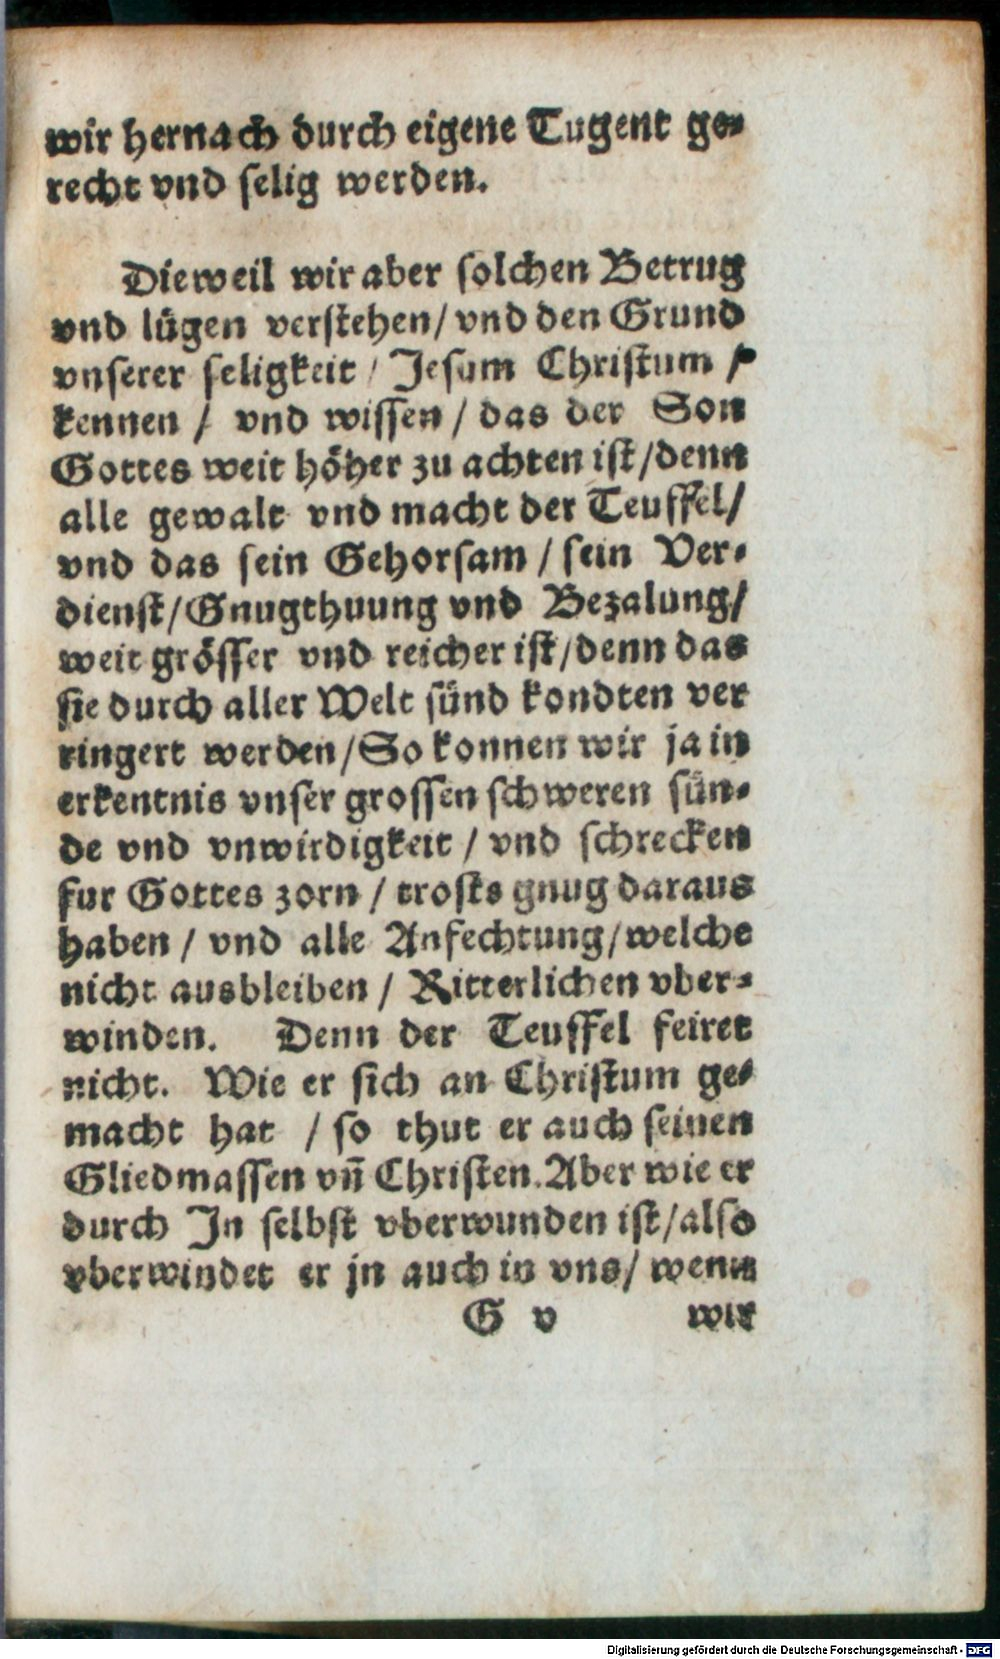 wir hernach durch eigene Tugent ge-
recht vnd selig werden.
Dieweil wir aber solchen Betrug
vnd lügen verstehen/ vnd den Grund
vnserer seligkeit / Jesum Christum /
kennen / vnd wissen / das der Son
Gottes weit höher zu achten ist/denn
alle gewalt vnd macht der Teuffel/
vnd das sein Gehorsam / sein Ver-
dienst/Gnugthuung vnd Bezalung/
weit grösser vnd reicher ist/denn das
sie durch aller Welt sünd kondten ver
ringert werden/So konnen wir ja in
erkentnis vnser grossen schweren sün-
de vnd vnwirdigkeit / vnd schrecken
fur Gottes zorn / trosts gnug daraus
haben / vnd alle Anfechtung/welche
nicht ausbleiben / Ritterlichen vber-
winden. Denn der Teuffel feiret
nicht. Wie er sich an Christum ge-
macht hat / so thut er auch seinen
Gliedmassen vñ Christen. Aber wie er
durch Jn selbst vberwunden ist/also
vberwindet er jn auch in vns/ wenn
G v wir
Digitalisierung gefördert durch die Deutsche Forschungsgemeinschaft - DFG